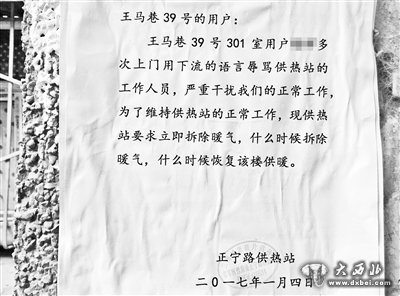 王马巷39号的用户：
王马巷39号301室用户 多
次上门用下流的语言辱骂供热站的
工作人员，严重干扰我们的正常工作，
为了维持供热站的正常工作，现供热
站要求立即拆除暖气，什么时候拆除
暖气，什么时候恢复该楼供暖。
正宁路供热站
二0一七年一月四日
大西北
www.dxbei.com